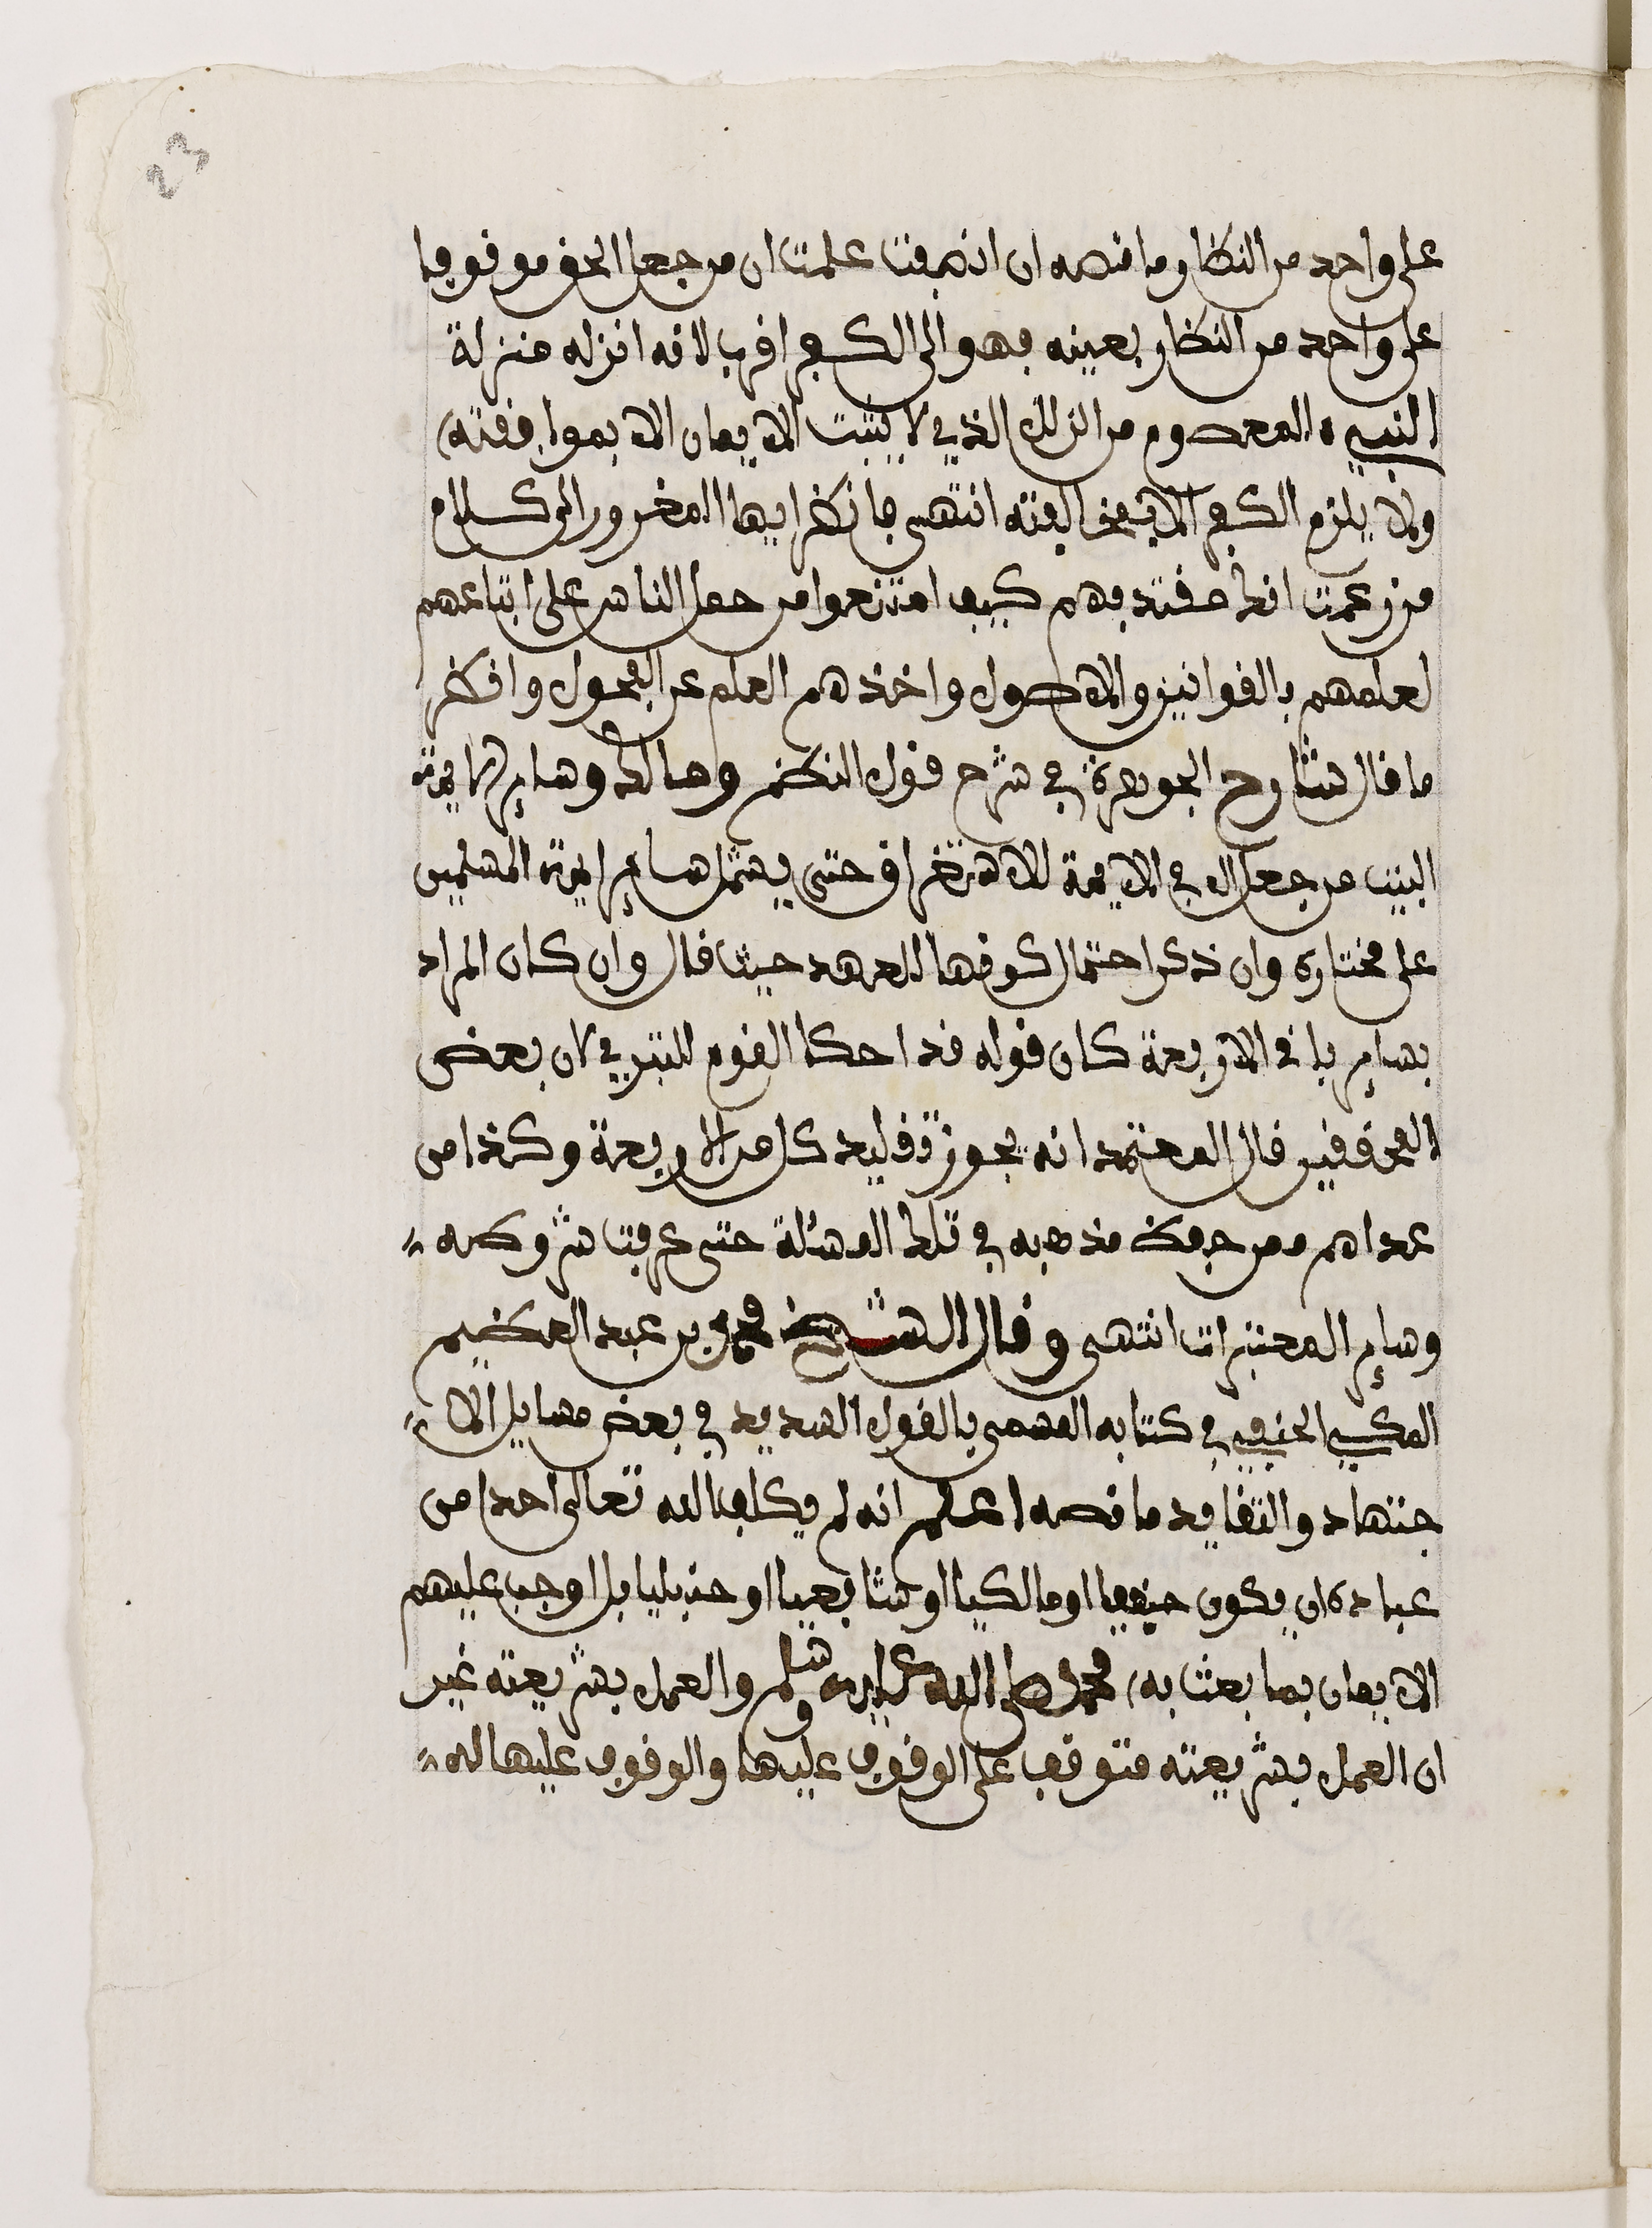 23
على واحد من النظار ما نصه ان انصفت علمت ان من جعل الحق موقوفا
على واحد من النظار بعينه فهو الى الكفر اقرب لانه انزله منزلة
النبيء المعصوم من الزلل الذي لا يثبت الايمان الا بموافقته
ولا يلزم الكفر الا بمخالفته انتهى فانظر ايها المغرور الى كلام
من زعمت انك مقتد بهم كيف امتنعوا من حمل الناس على اتباعهم
لعلمهم بالقوانين والاصول واخذهم العلم عن الفحول وانظر
ما قال شارح الجوهرة في شرح قول النظم ومالك وساير الايمة
البيت من جعل ال في الايمة للاستغراق حتى يشمل ساير ايمة المسلمين
على مختاره وان ذكر احتمال كونها للعهد حيث قال وان كان المراد
بساير باقي الاربعة كان قوله فذا حكا القوم للتبري لان بعض
المحققين قال المعتمد انه يجوز تقليد كل من الاربعة وكذا من
عداهم ممن حفظ مذهبه في تلك المسئلة حتى عرفت شروطه
وساير المعتبرات انتهى وقال الشيخ محمد بن عبد العظيم
المكي الحنفي في كتابه المسمى بالقول السديد في بعض مسايل الا
جتهاد والتقليد ما نصه اعلم انه لم يكلف الله تعالى احدا من
عباده ان يكون حنفيا او مالكيا او شافعيا او حنبليا بل اوجب عليهم
الايمان بما بعث به محمدا صلى الله عليه وسلم والعمل بشريعته غير
ان العمل بشريعته متوقف على الوقوف عليها والوقوف عليها له